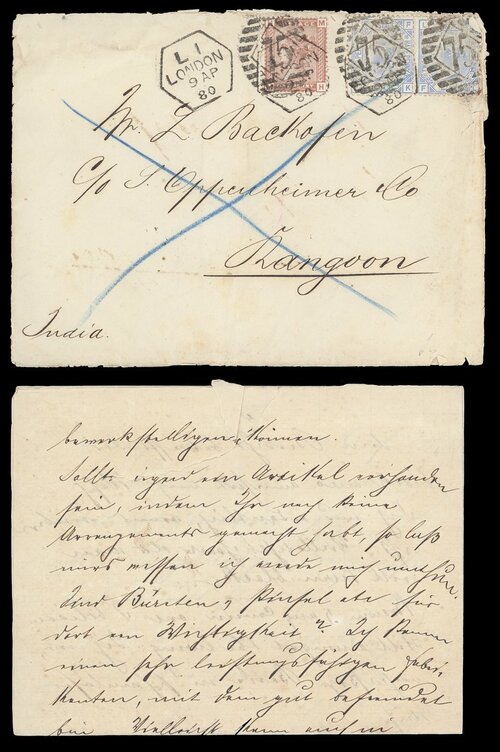 L 1
LONDON
9 AP
80
75
75
75
80
80
M
H
F
K
L
F
Mr L Backhofen
c/o S. Oppenheimer & Co
Rangoon
India.
bewerkstelligen können.
Sollte irgend ein Artikel vorhanden
sein, indem Ihr noch keine
Arrangements gemacht habt, so laß
mirs wissen ich werde mich umthun.
Sind Bürsten, Pinsel etc für
dort von Wichtigkeit? Ich kenne
einen sehr leistungsfähigen Fabri-
kanten, mit dem gut befreundet
bin Vielleicht kann auch